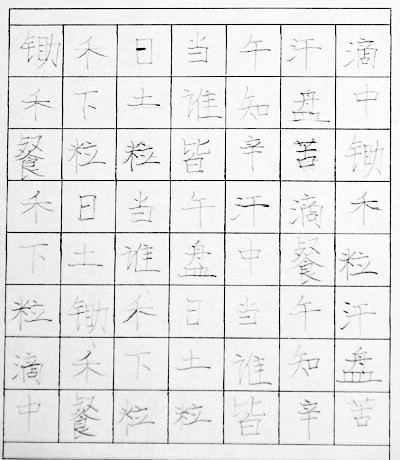 锄禾日当午汗滴
禾下土谁知盘中
餐粒粒皆辛苦锄
禾日当午汗滴禾
下土谁盘中餐粒
粒锄禾日当午汗
滴禾下土谁知盘
中餐粒粒皆辛苦